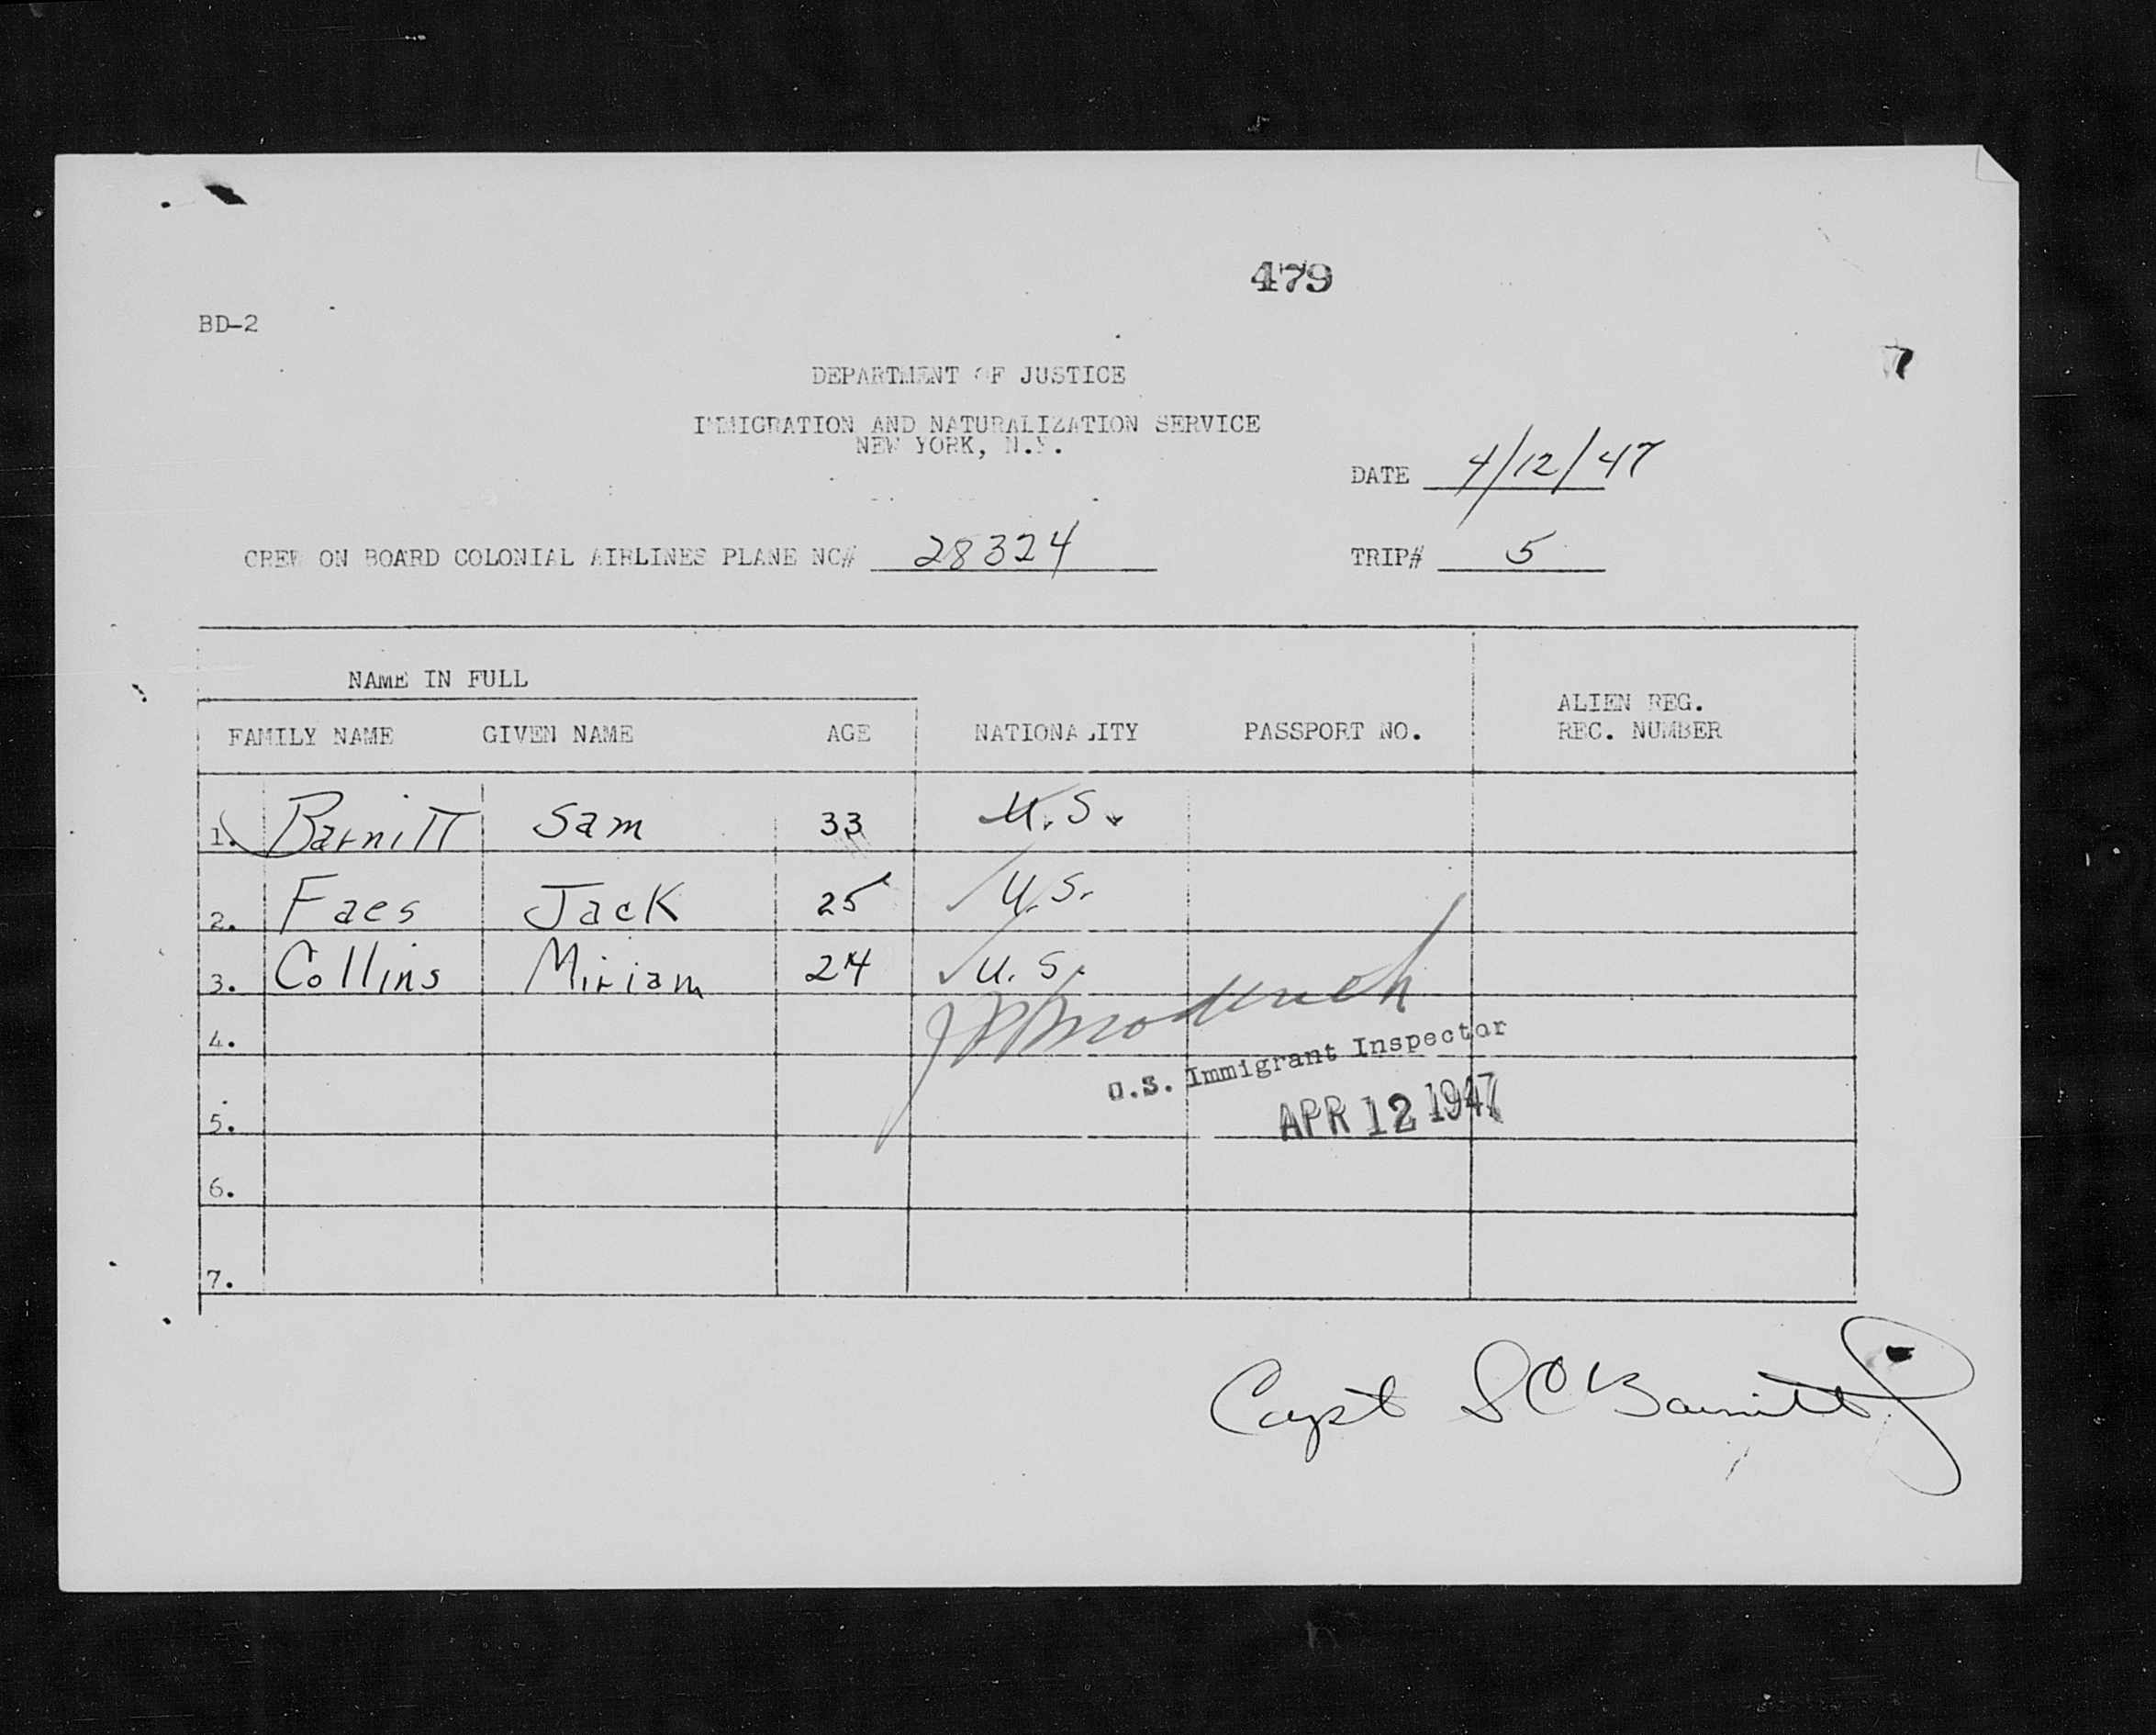 479
BD-2
7
DEPARTMENT OF JUSTICE
IMMIGRATION AND NATURALIZATION SERVICE
NEW YORK, N.Y.
DATE 4/12/47
CREW ON BOARD COLONIAL AIRLINES PLANE NC# 28324 TRIP# 5
NAME IN FULL
FAMILY NAME GIVEN NAME AGE NATIONALITY PASSPORT NO. ALIEN REG. REC. NUMBER
1. Barnitt Sam 33 U.S.
2. Faes Jack 25 U.S.
3. Collins Miriam 24 U.S.
4.
U.S. Immigrant Inspector
APR 12 1947
5.
6.
7.
Capt S C Barnitt